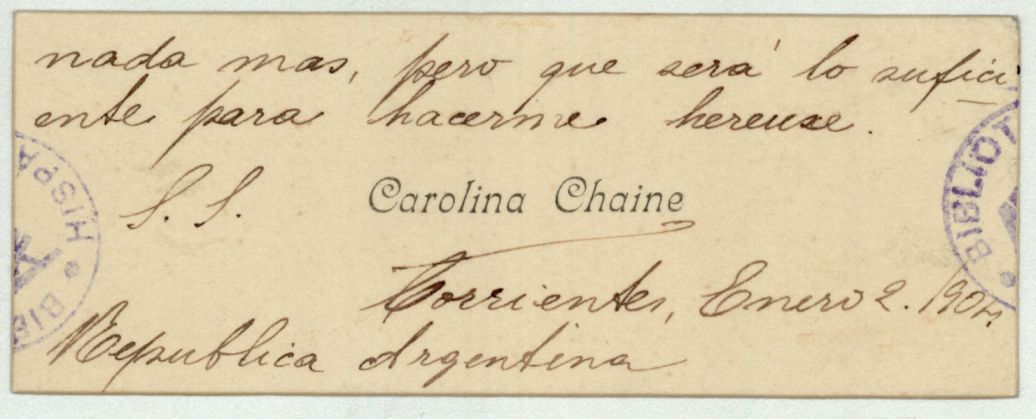 nada mas, pero que será lo sufici
ente para hacerme hereuse.
S. S. Carolina Chaine
Corrientes, Enero 2. 1904.
Republica Argentina
HISPA
BIB
BIBLIOT